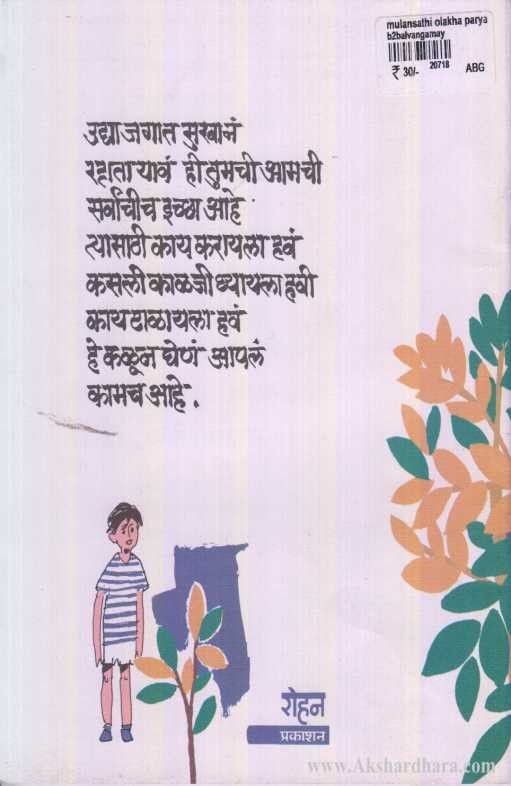 mulansathi olakha parya
b2balvangamay
₹ 30/- 20718 ABG
उद्या जगात सुखानं
रहाता यावं ही तुमची आमची
सर्वांचीच इच्छा आहे
त्यासाठी काय करायला हवं
कसली काळजी घ्यायला हवी
काय टाळायला हवं
हे कळून घेणं आपलं
कामच आहे.
रोहन
प्रकाशन
www.Akshardhara.com